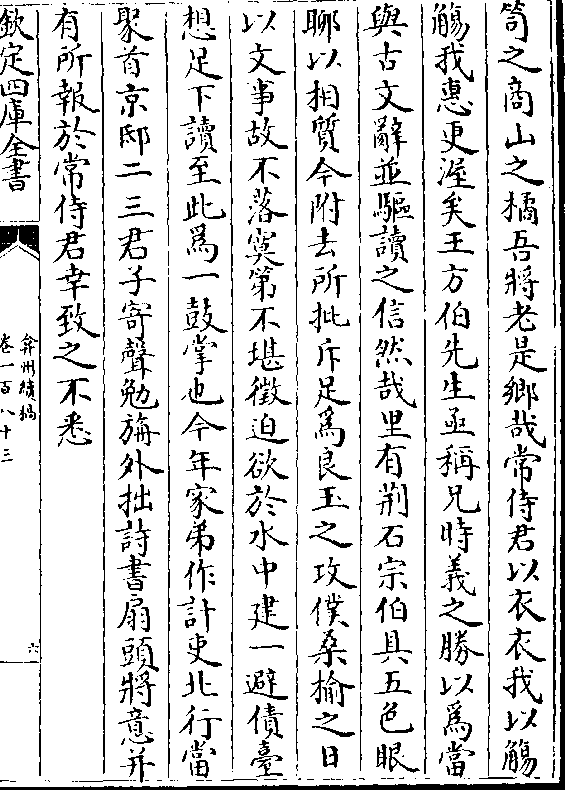 笥之商山之橘吾將老是鄉哉常侍君以衣衣我以觴
觴我惠更渥矣王方伯先生亟稱兄時義之勝以為當
與古文辭並驅讀之信然哉里有荆石宗伯具五色眼
聊以相質今附去所批斥足為良玉之攻僕桑榆之日
以文事故不落寞第不堪徵迫欲於水中建一避債臺
想足下讀至此為一鼓掌也今年家弟作計吏北行當
聚首京邸二三君子寄聲勉旃外拙詩書扇頭將意并
有所報於常侍君幸致之不悉
欽定四庫全書
弇州續稿
卷一百八十三
六